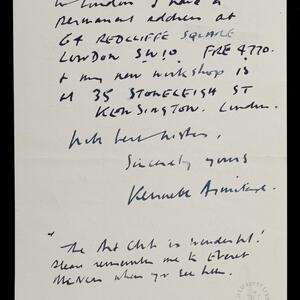 in London I have a
permanent address at
64 REDCLIFFE SQUARE
LONDON SW10. FRE 4770.
+ my new workshop is
at 35 STONELEIGH ST
KENSINGTON. London.
with best wishes,
Sincerely yours
Kenneth Armitage.
"The Art Club is wonderful!
Please remember me to Everet
McNear when you see him.